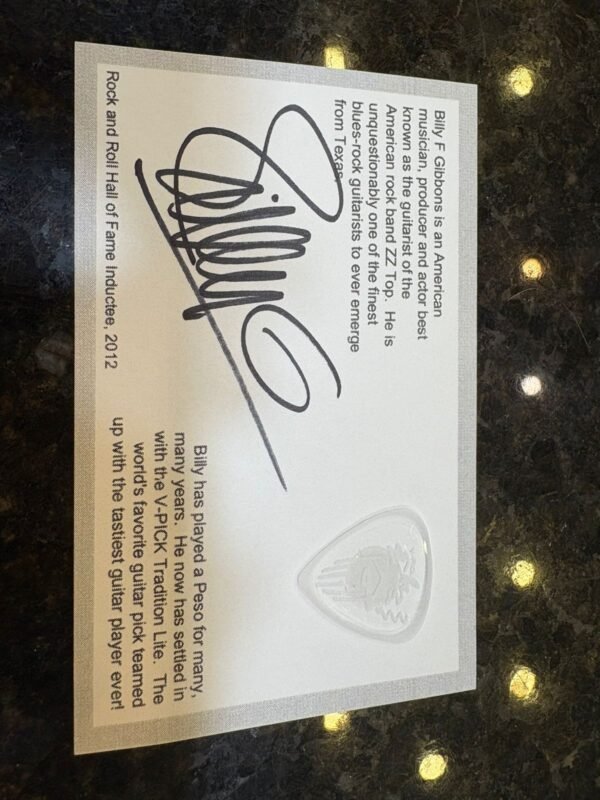 Billy F Gibbons is an American
musician, producer and actor best
known as the guitarist of the
American rock band ZZ Top. He is
unquestionably one of the finest
blues-rock guitarists to ever emerge
from Texas.
Billy G
Rock and Roll Hall of Fame Inductee, 2012
Billy has played a Peso for many,
many years. He now has settled in
with the V-PICK Tradition Lite. The
world's favorite guitar pick teamed
up with the tastiest guitar player ever!